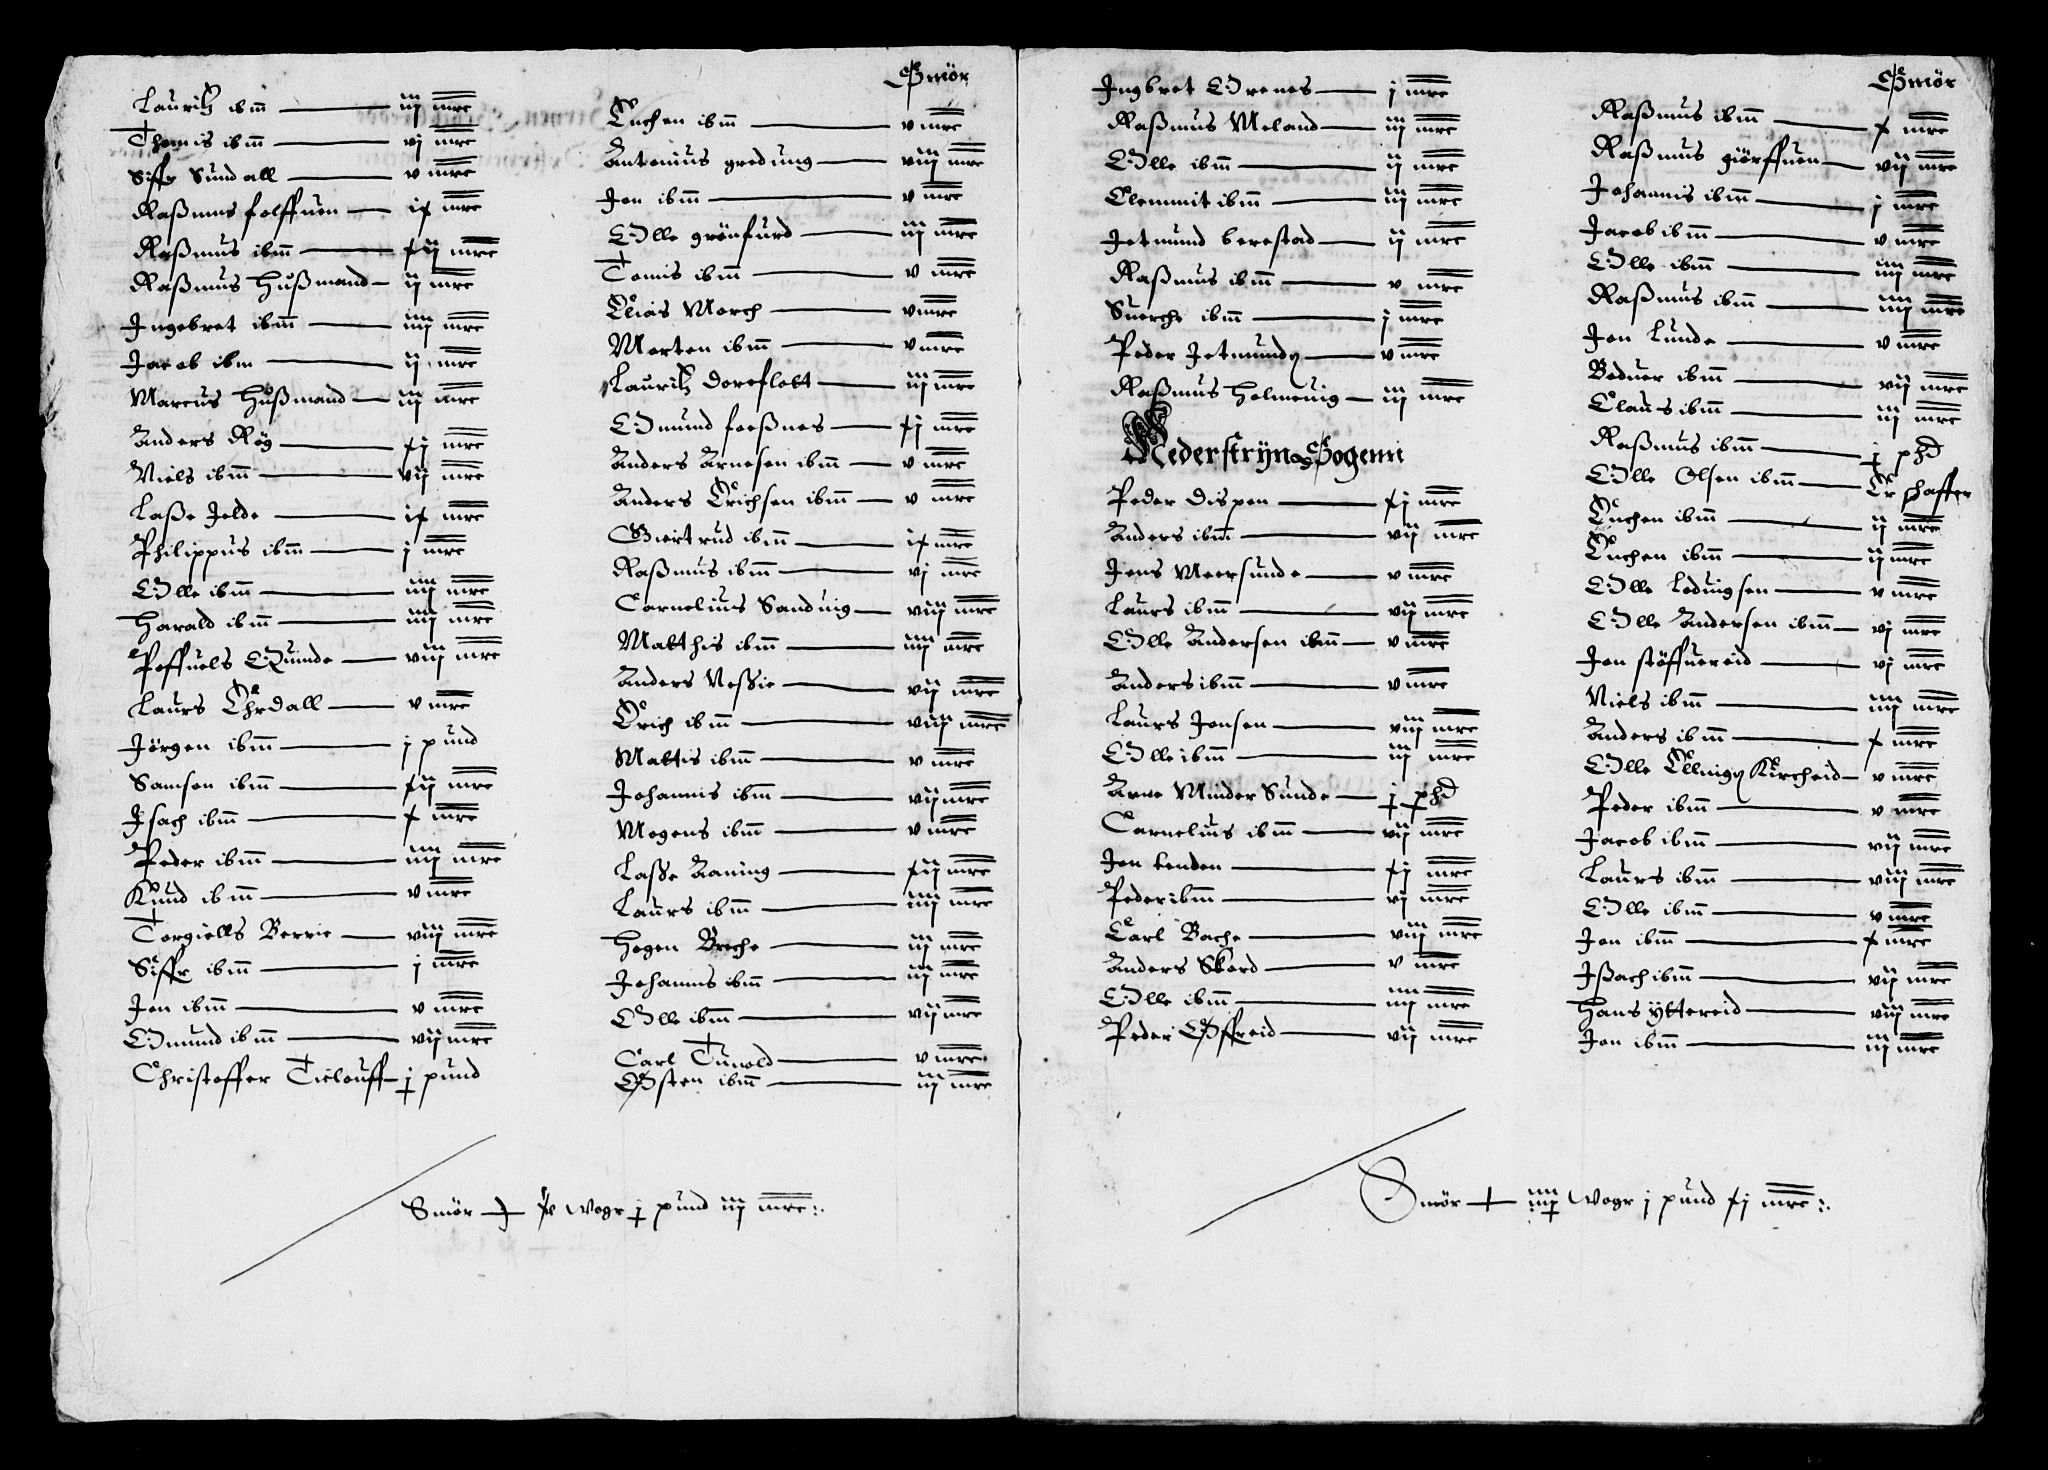 Smör
Lauritz ibm̄ iiij mrc
Thomis ibm̄ vj mrc
Siffr Sundall v mrc
Raßmus folffuen ix mrc
Raßmus ibm̄ xij mrc
Raßmus Hußmand ij mrc
Ingebret ibm̄ iiij mrc
Jacob ibm ij mrc
Marcus Hußmand iij mrc
Anders Røg xj mrc
Niels ibm̄ vij mrc
Laße Jelde ix mrc
Philippus ibm̄ j mrc
Olle ibm̄ iiij mrc
Harald ibm̄ iiij mrc
Poffuels Quinde viij mrc
Laurs Ehrdall v mrc
Jörgen ibm̄ j pund
Samson ibm̄ xij mrc
Isach ibm̄ x mrc
Peder ibm̄ iiij mrc
Knud ibm̄ v mrc
Torgiells Berrie viij mrc
Siffr ibm̄ j mrc
Jon ibm̄ v mrc
Omund ibm̄ vij mrc
Christoffer Tislouff j pund
Enchen ibm̄ v mrc
Antonius gredung viij mrc
Jon ibm̄ v mrc
Olle grönfurd iij mrc
Tomis ibm̄ v mrc
Elias Morch v mrc
Morten ibm̄ v mrc
Lauritz Doreflott iij mrc
Omund foeßnes xj mrc
Anders Arnesen ibm̄ v mrc
Anders Erichsen ibm̄ v mrc
Giertrud ibm̄ ix mrc
Raßmus ibm̄ vj mrc
Cornelius Sanduig viij mrc
Matthis ibm̄ iiij mrc
Anders Neßie vij mrc
Erich ibm̄ viij mrc
Mattis ibm̄ v mrc
Johannis ibm̄ vij mrc
Mogens ibm̄ v mrc
Lasse Aaning xij mrc
Laurs ibm̄ iiij mrc
Hogen Breche iij mrc
Johannis ibm̄ iij mrc
Olle ibm̄ vij mrc
Carl Tunold v mrc
Østen ibm̄ iij mrc
Smör x Wogr j pund iij mrc
Smör
Ingbret Orenes j mrc
Raßmus Meland iij mrc
Olle ibm̄ ij mrc
Clemmit ibm̄ iij mrc
Jetmund berestad ij mrc
Raßmus ibm̄ v mrc
Suerche ibm̄ j mrc
Peder Jetmundz v mrc
Raßmus Holmeuig iij mrc
Nederstryn Sogenn
Peder Dispen xj mrc
Anders ibm̄ vij mrc
Jens Meersunde v mrc
Laurs ibm̄ vij mrc
Olle Andersen ibm̄ v mrc
Anders ibm̄ v mrc
Laurs Jensen viij mrc
Olle ibm̄ iij mrc
Arne Minder Sunde j phd
Cornelius ibm̄ vij mrc
Jon tenden xj mrc
Peder ibm̄ vj mrc
Carl Bache viij mrc
Anders Skord v mrc
Olle ibm̄ iiij mrc
Peder Øffreid vij mrc
Raßmus ibm̄ x mrc
Raßmus giörffuen vij mrc
Johannis ibm̄ j mrc
Jacob ibm̄ v mrc
Olle ibm̄ iiij mrc
Raßmus ibm̄ iiij mrc
Jon Lunde v mrc
Beduer ibm̄ vij mrc
Claus ibm̄ iij mrc
Raßmus ibm̄ j phd
Olle Olsen ibm̄ Er schaffer
Enchen ibm̄ ij mrc
Enchen ibm̄ ij mrc
Olle Loduigsen v mrc
Olle Andersen ibm̄ vj mrc
Jon stöffuereid vj mrc
Niels ibm̄ iiij mrc
Anders ibm̄ x mrc
Olle Ellnigz Kircheid v mrc
Peder ibm̄ v mrc
Jacob ibm̄ vij mrc
Laurs ibm̄ viij mrc
Olle ibm̄ v mrc
Jon ibm̄ x mrc
Ißach ibm̄ vij mrc
Hans yttereid viij mrc
Jon ibm̄ iij mrc
Smör iiij Wogr j pund xj mrc